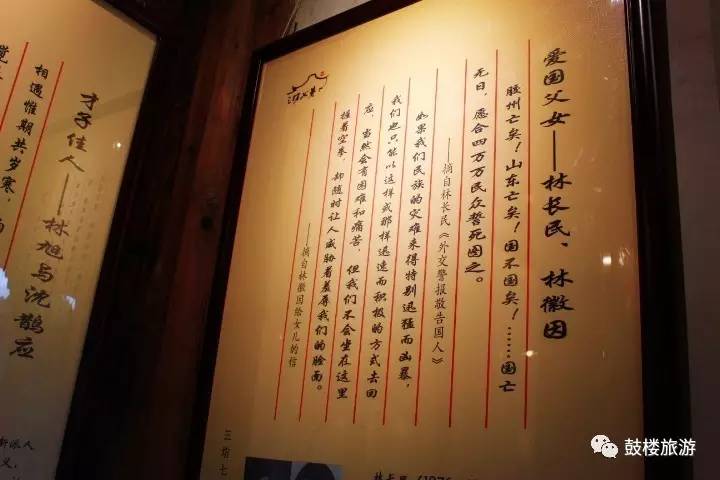 爱国父女——林长民、林徽因
胶州亡矣！山东亡矣！国不国矣！……国亡
无日，愿合四万万民众誓死图之。
——摘自林长民《外交警报敬告国人》
如果我们民族的灾难来得特别迅猛而凶暴，
我们也只能以这样或那样迅速而积极的方式去回
应，当然会有困难和痛苦，但我们不会坐在这里
握着空拳，却随时让人威胁着羞辱我们的脸面。
——摘自林徽因给女儿的信
三坊七
才子佳人——林旭与沈鹊应
相遇惟期共岁寒，
鼓楼旅游